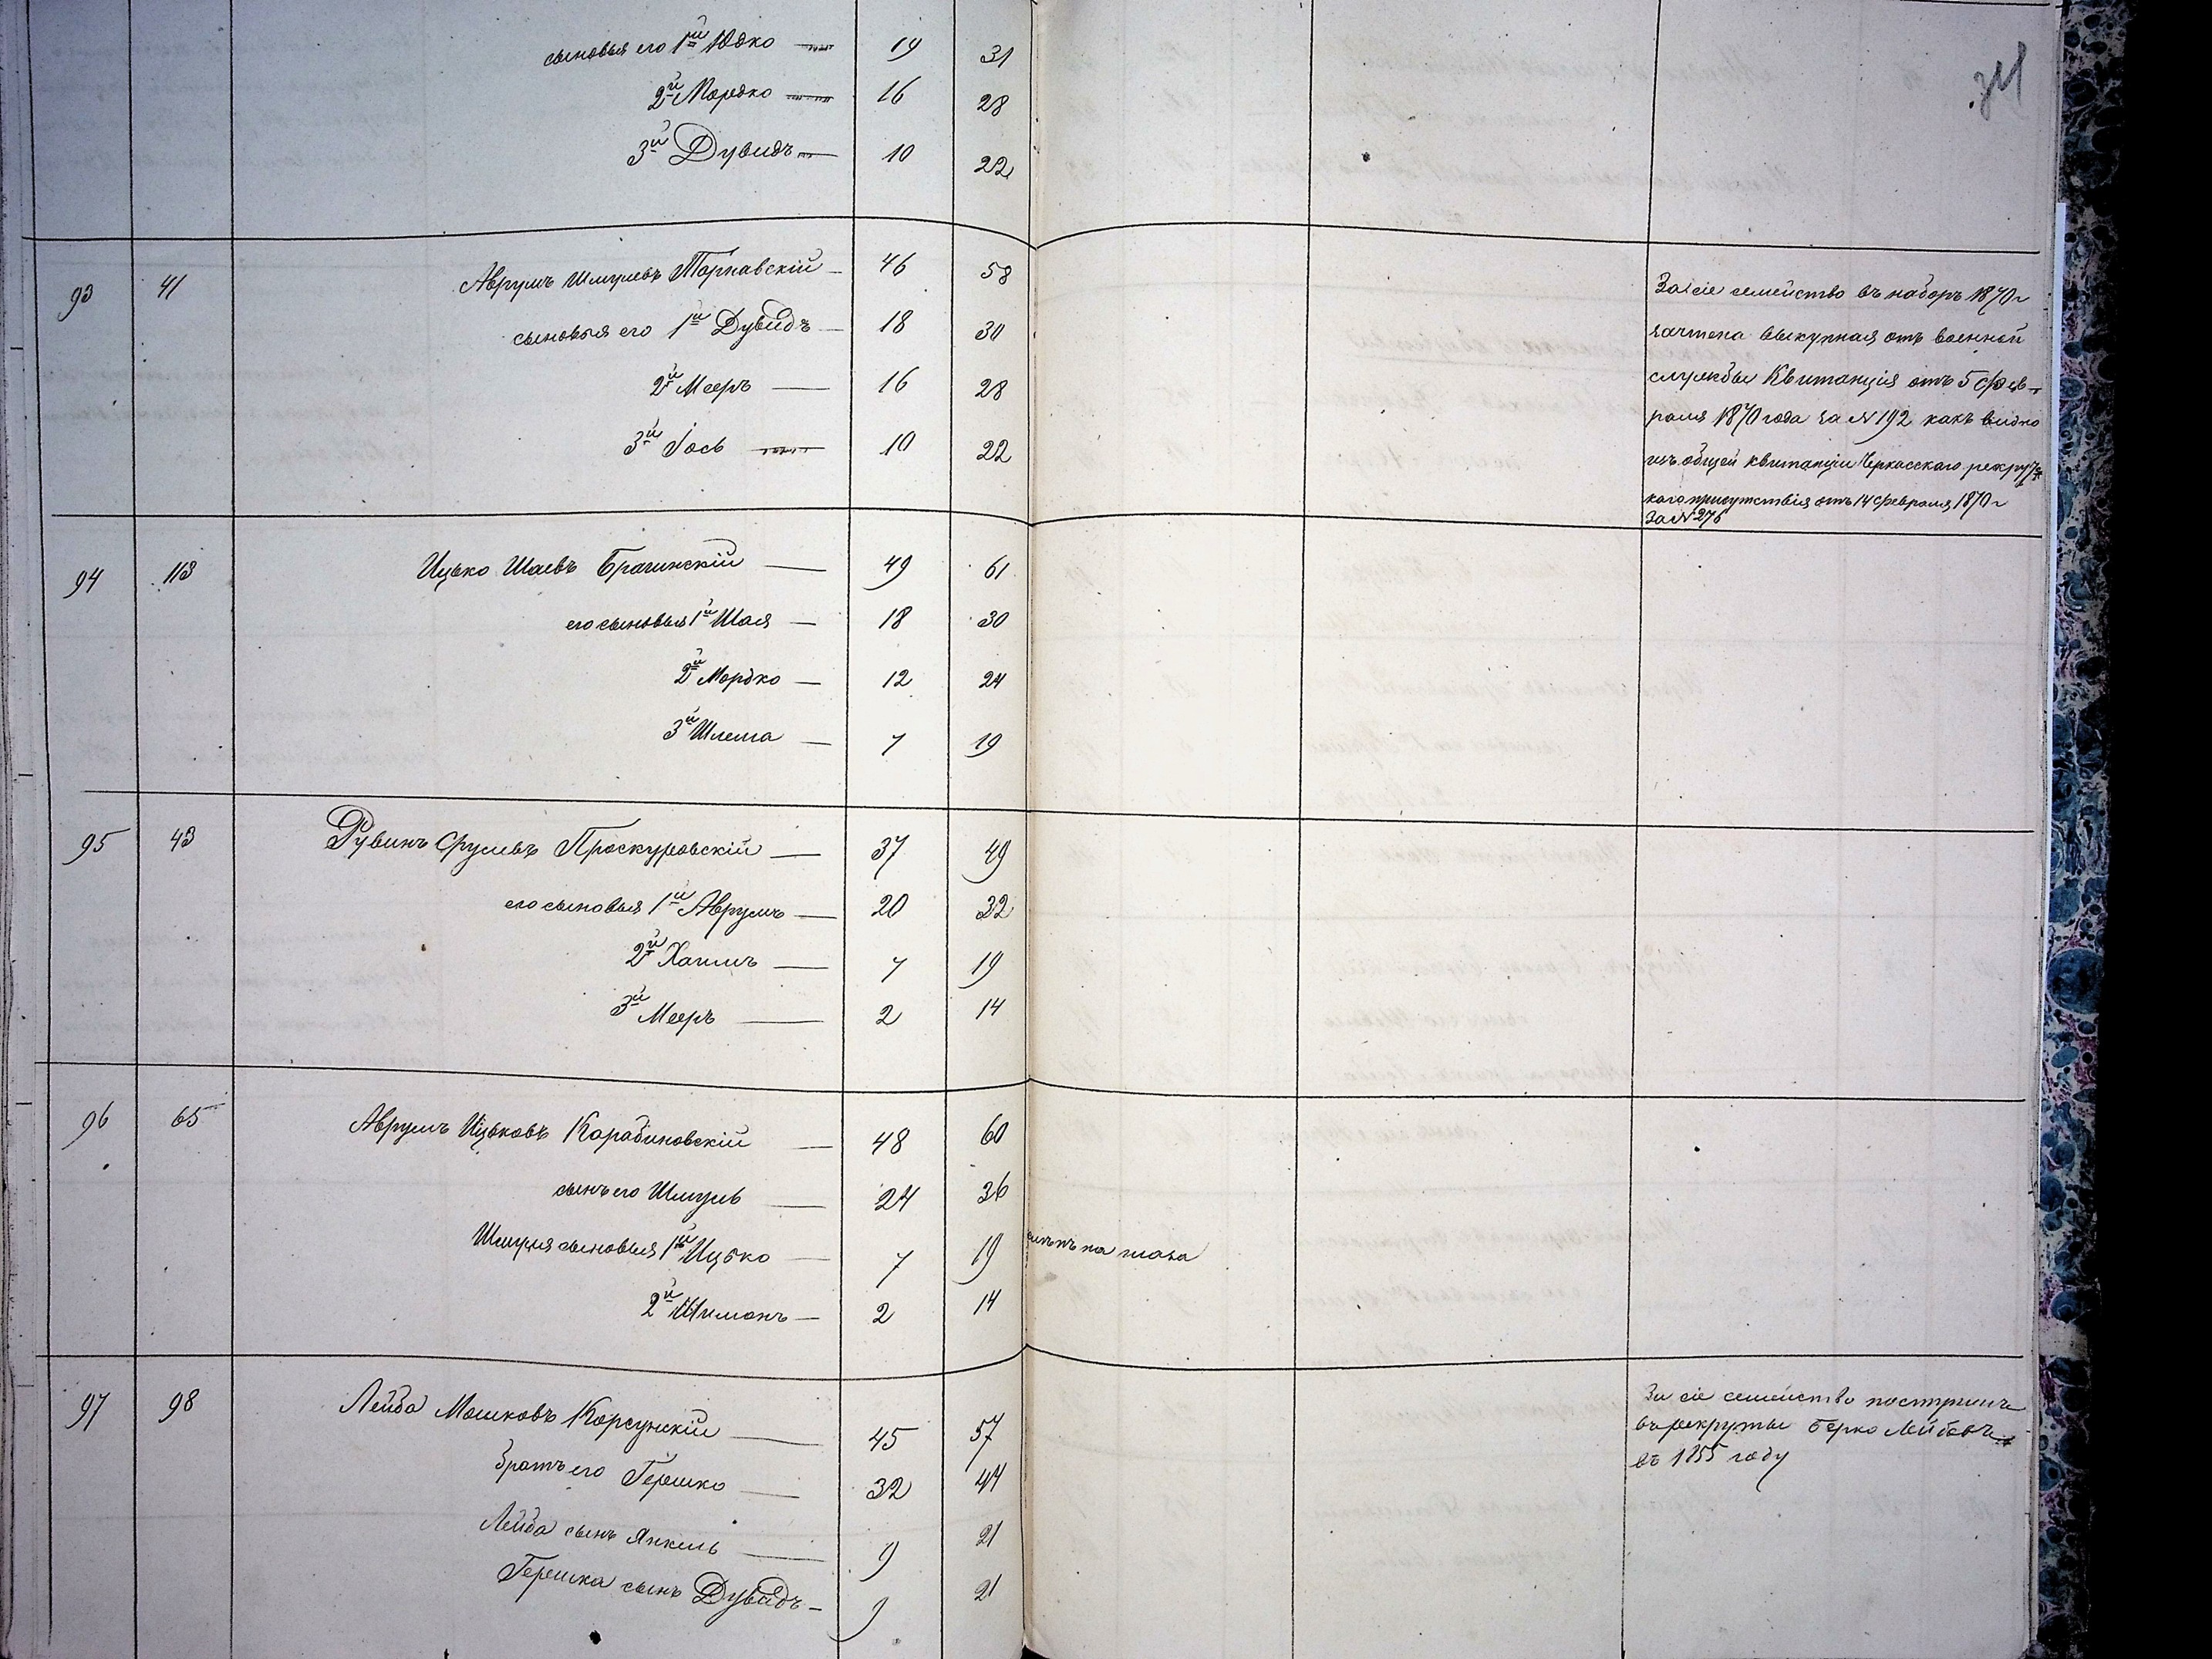 сыновья его 1й Юдко — 19 31
2й Мордко — 16 28
3й Дувидъ — 10 22
93 41 Аврумъ Шмулевъ Тарнавскій — 46 58
сыновья его 1й Дувидъ — 18 30
2й Мееръ — 16 28
3й Іось — 10 22
За сіе семейство въ наборъ 1870 г
зачтена выкупная отъ военной
службы Квитанція отъ 5 Фев-
раля 1870 года за № 192 какъ видно
изъ общей квитанціи Черкасскаго рекрутс
каго присутствія отъ 14 февраля 1870 г
За № 276
94 113 Ицько Шаевъ Брагинскій — 49 61
его сыновья 1й Шая — 18 30
2й Мордко — 12 24
3й Шлема — 7 19
95 43 Рувинъ Срулевъ Проскуровскій — 37 49
его сыновья 1й Аврумъ — 20 32
2й Хаимъ — 7 19
3й Мееръ — 2 14
96 65 Аврумъ Ицьковъ Карабиновскій — 48 60
сынъ его Шмуль — 24 36
Шмуля сыновья 1й Ицько — 7 19 на глаза
2й Шимонъ — 2 14
97 98 Лейба Мошковъ Корсунскій — 45 57
братъ его Гершко — 32 44
Лейба сынъ Янкель — 9 21
Гершка сынъ Дувидъ — 9 21
За сіе семейство поступилъ
въ рекруты Берко Лейбовъ
въ 1855 году